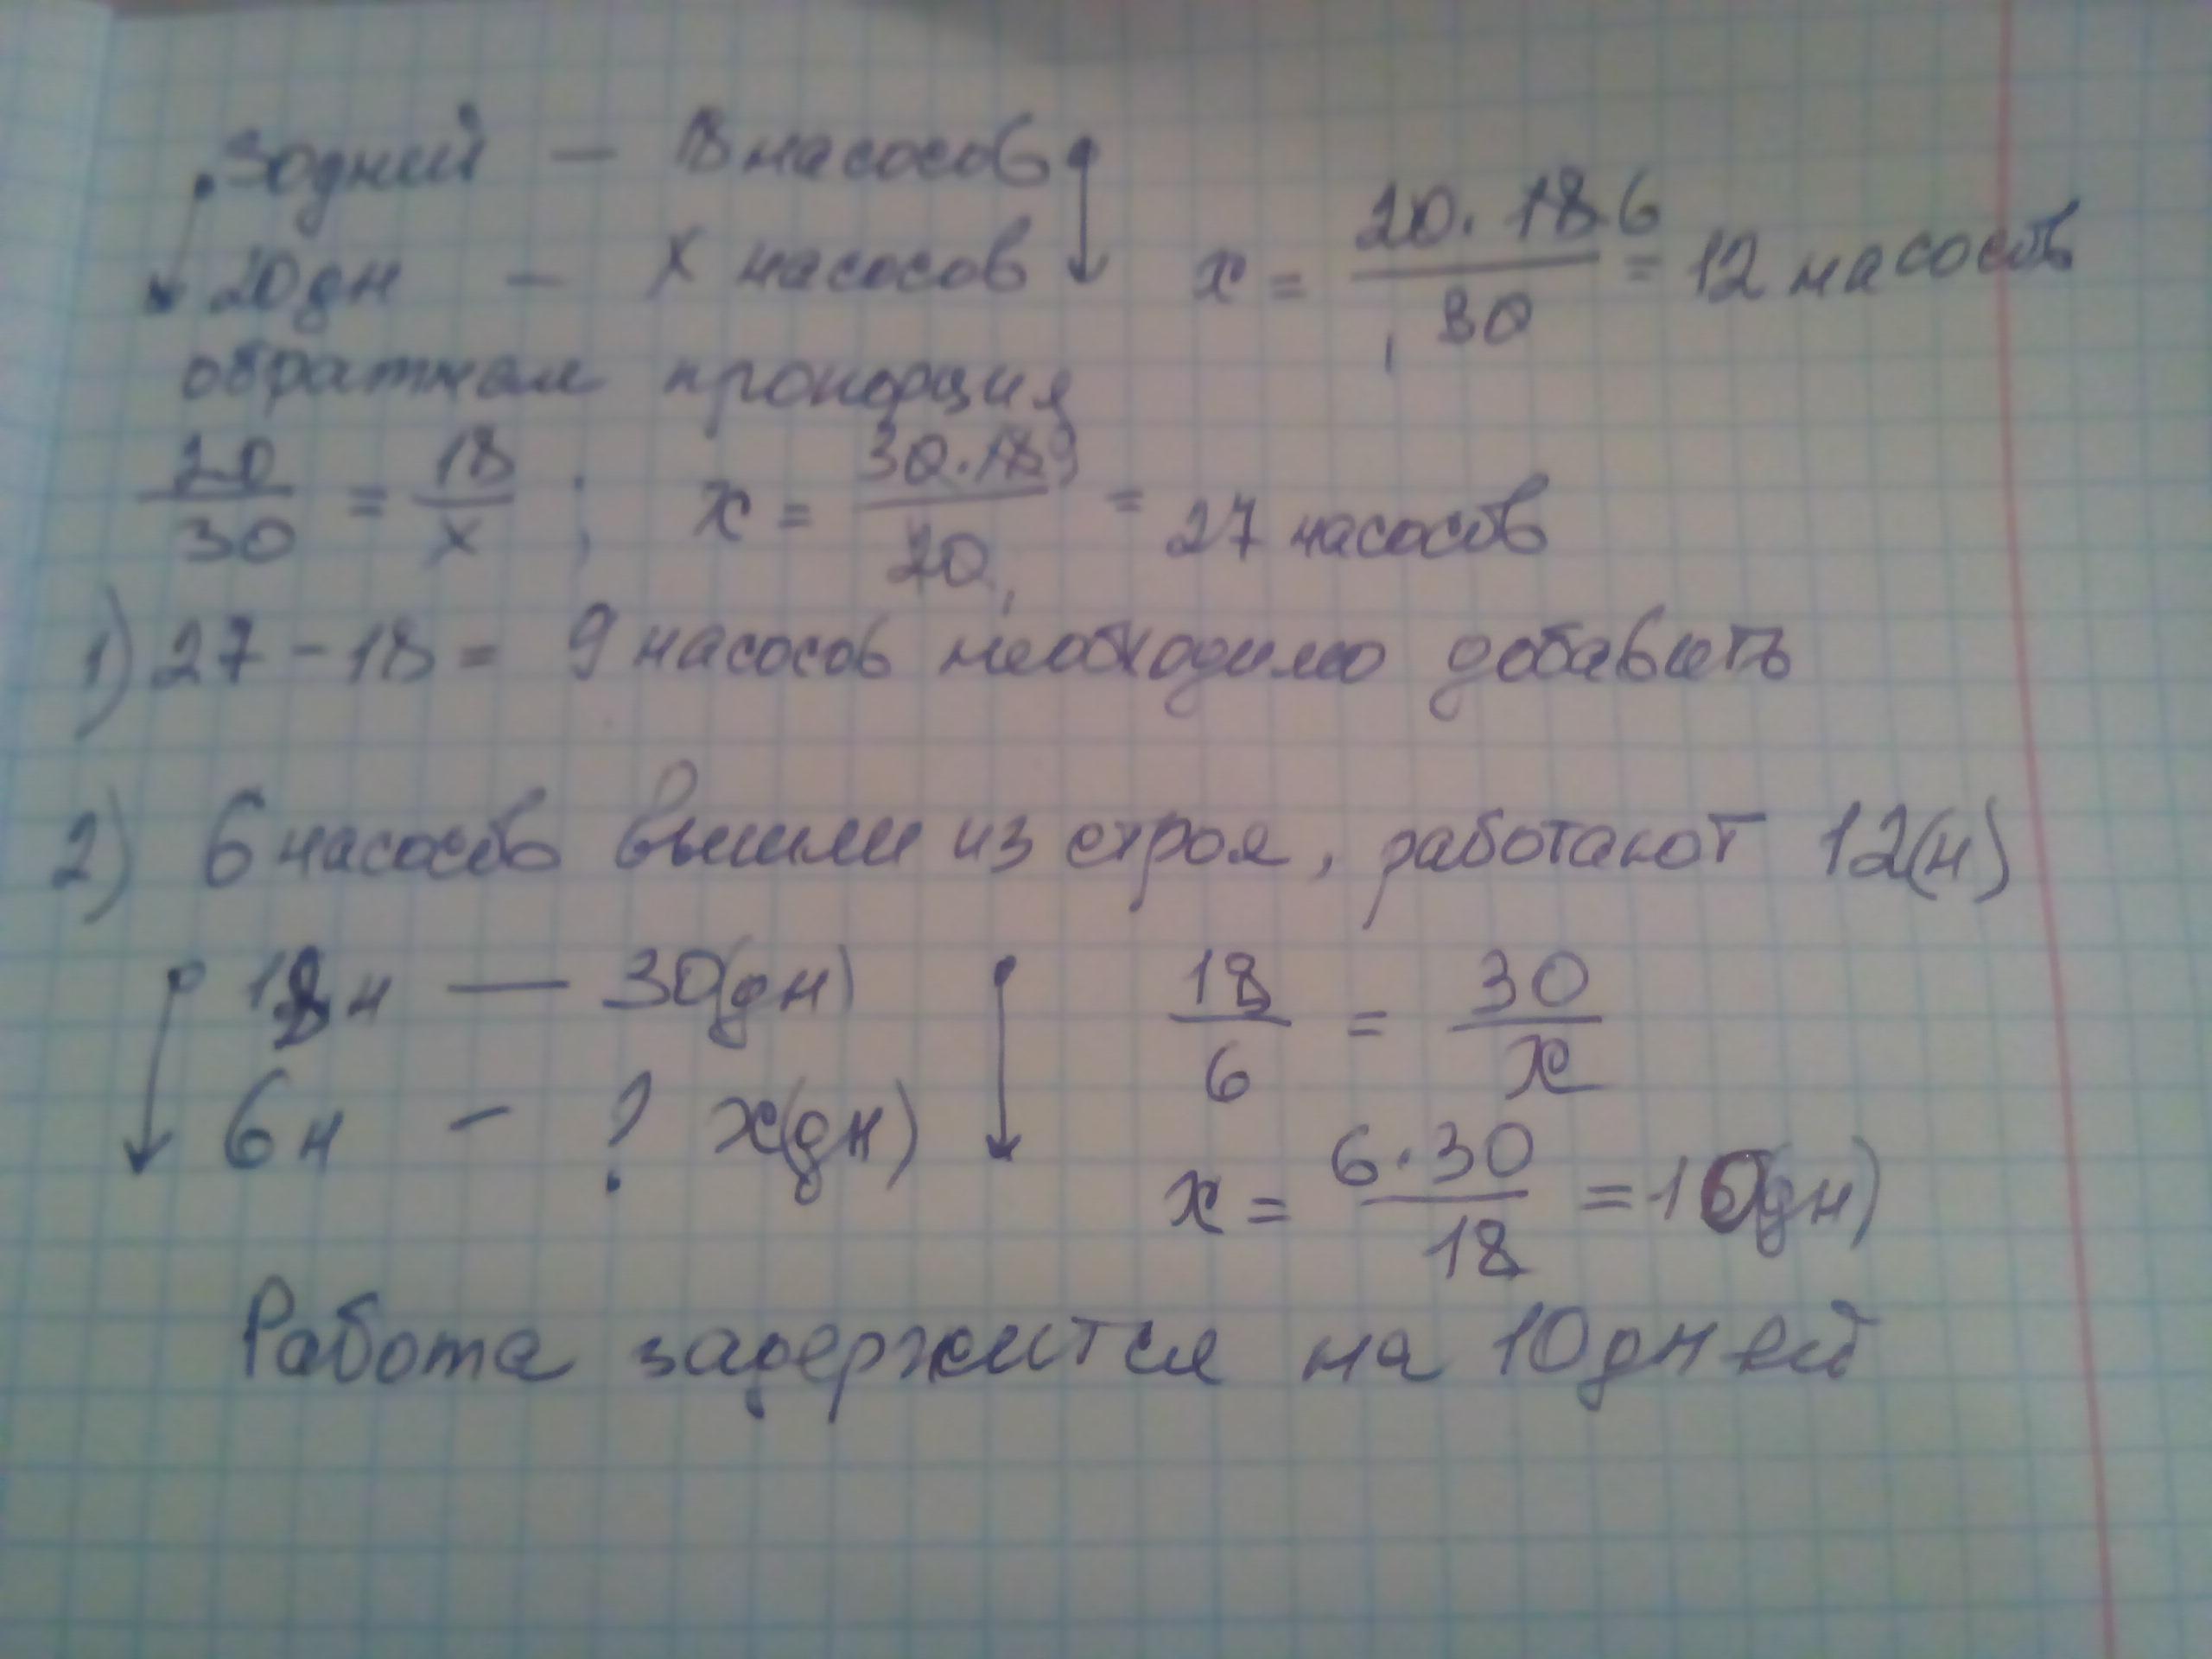 30дний — 18 насосов
20дн — х насосов
x = 20·18 6 / 30 = 12 насосов
обратная пропорция
20/30 = 18/х ; x = 30·18 9 / 20 = 27 насосов
1) 27 - 18 = 9 насосов необходимо добавить
2) 6 насосов вышли из строя, работают 12(н)
18н — 30(дн)
6н - ? x(дн)
18/6 = 30/x
x = 6·30/18 = 10(дн)
Работа задержится на 10 дней